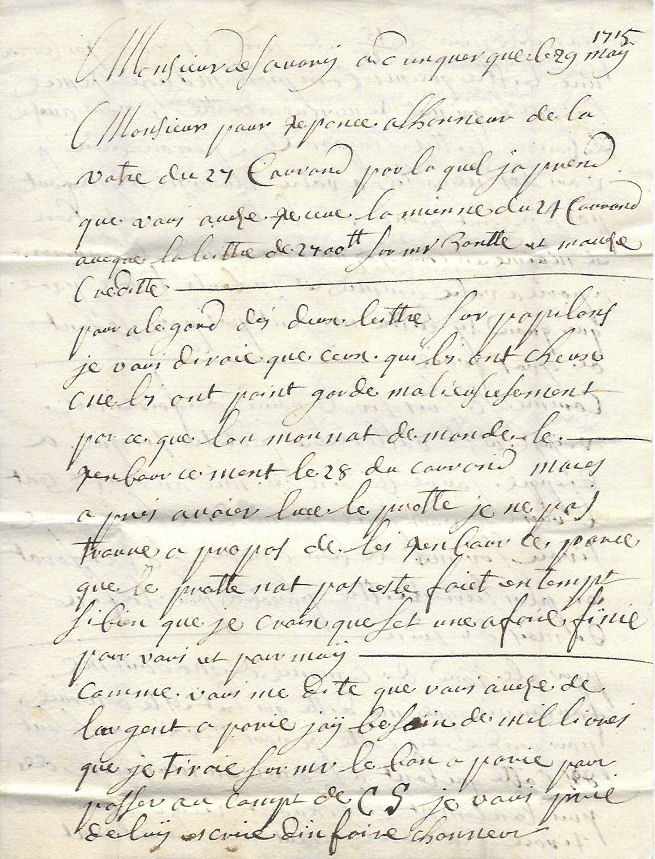 1715
Monsieur de Savary a Dunquerque le 29 may
Monsieur pour reponce a lhonneur de la
votre du 27 Courand par la quel japrend
que vous aveze recue la mienne du 24 Courand
aveque la lettre de 2700tt sor mr et mauze
Creditte
pour a legard des deux lettre sor papilons
je vous diraie que ceux qui les ont
les ont point garde malicieusement
par ce que lon monnat demonde le
renbourcement le 28 du courand maies
a pres avoier luee le protte je ne pas
trouve a propos de les renbource parce
que le protte nat pas este faiet en tempt
si bien que je croix que set une afaire finie
pour vous et pour moy
Comme vous me dite que vous aveze de
largent a parie jay besoin de mil livres
que je tiraie sor mr le bon a parie pour
passer au compt de C S je vous prie
de luy escrire din faire honneur